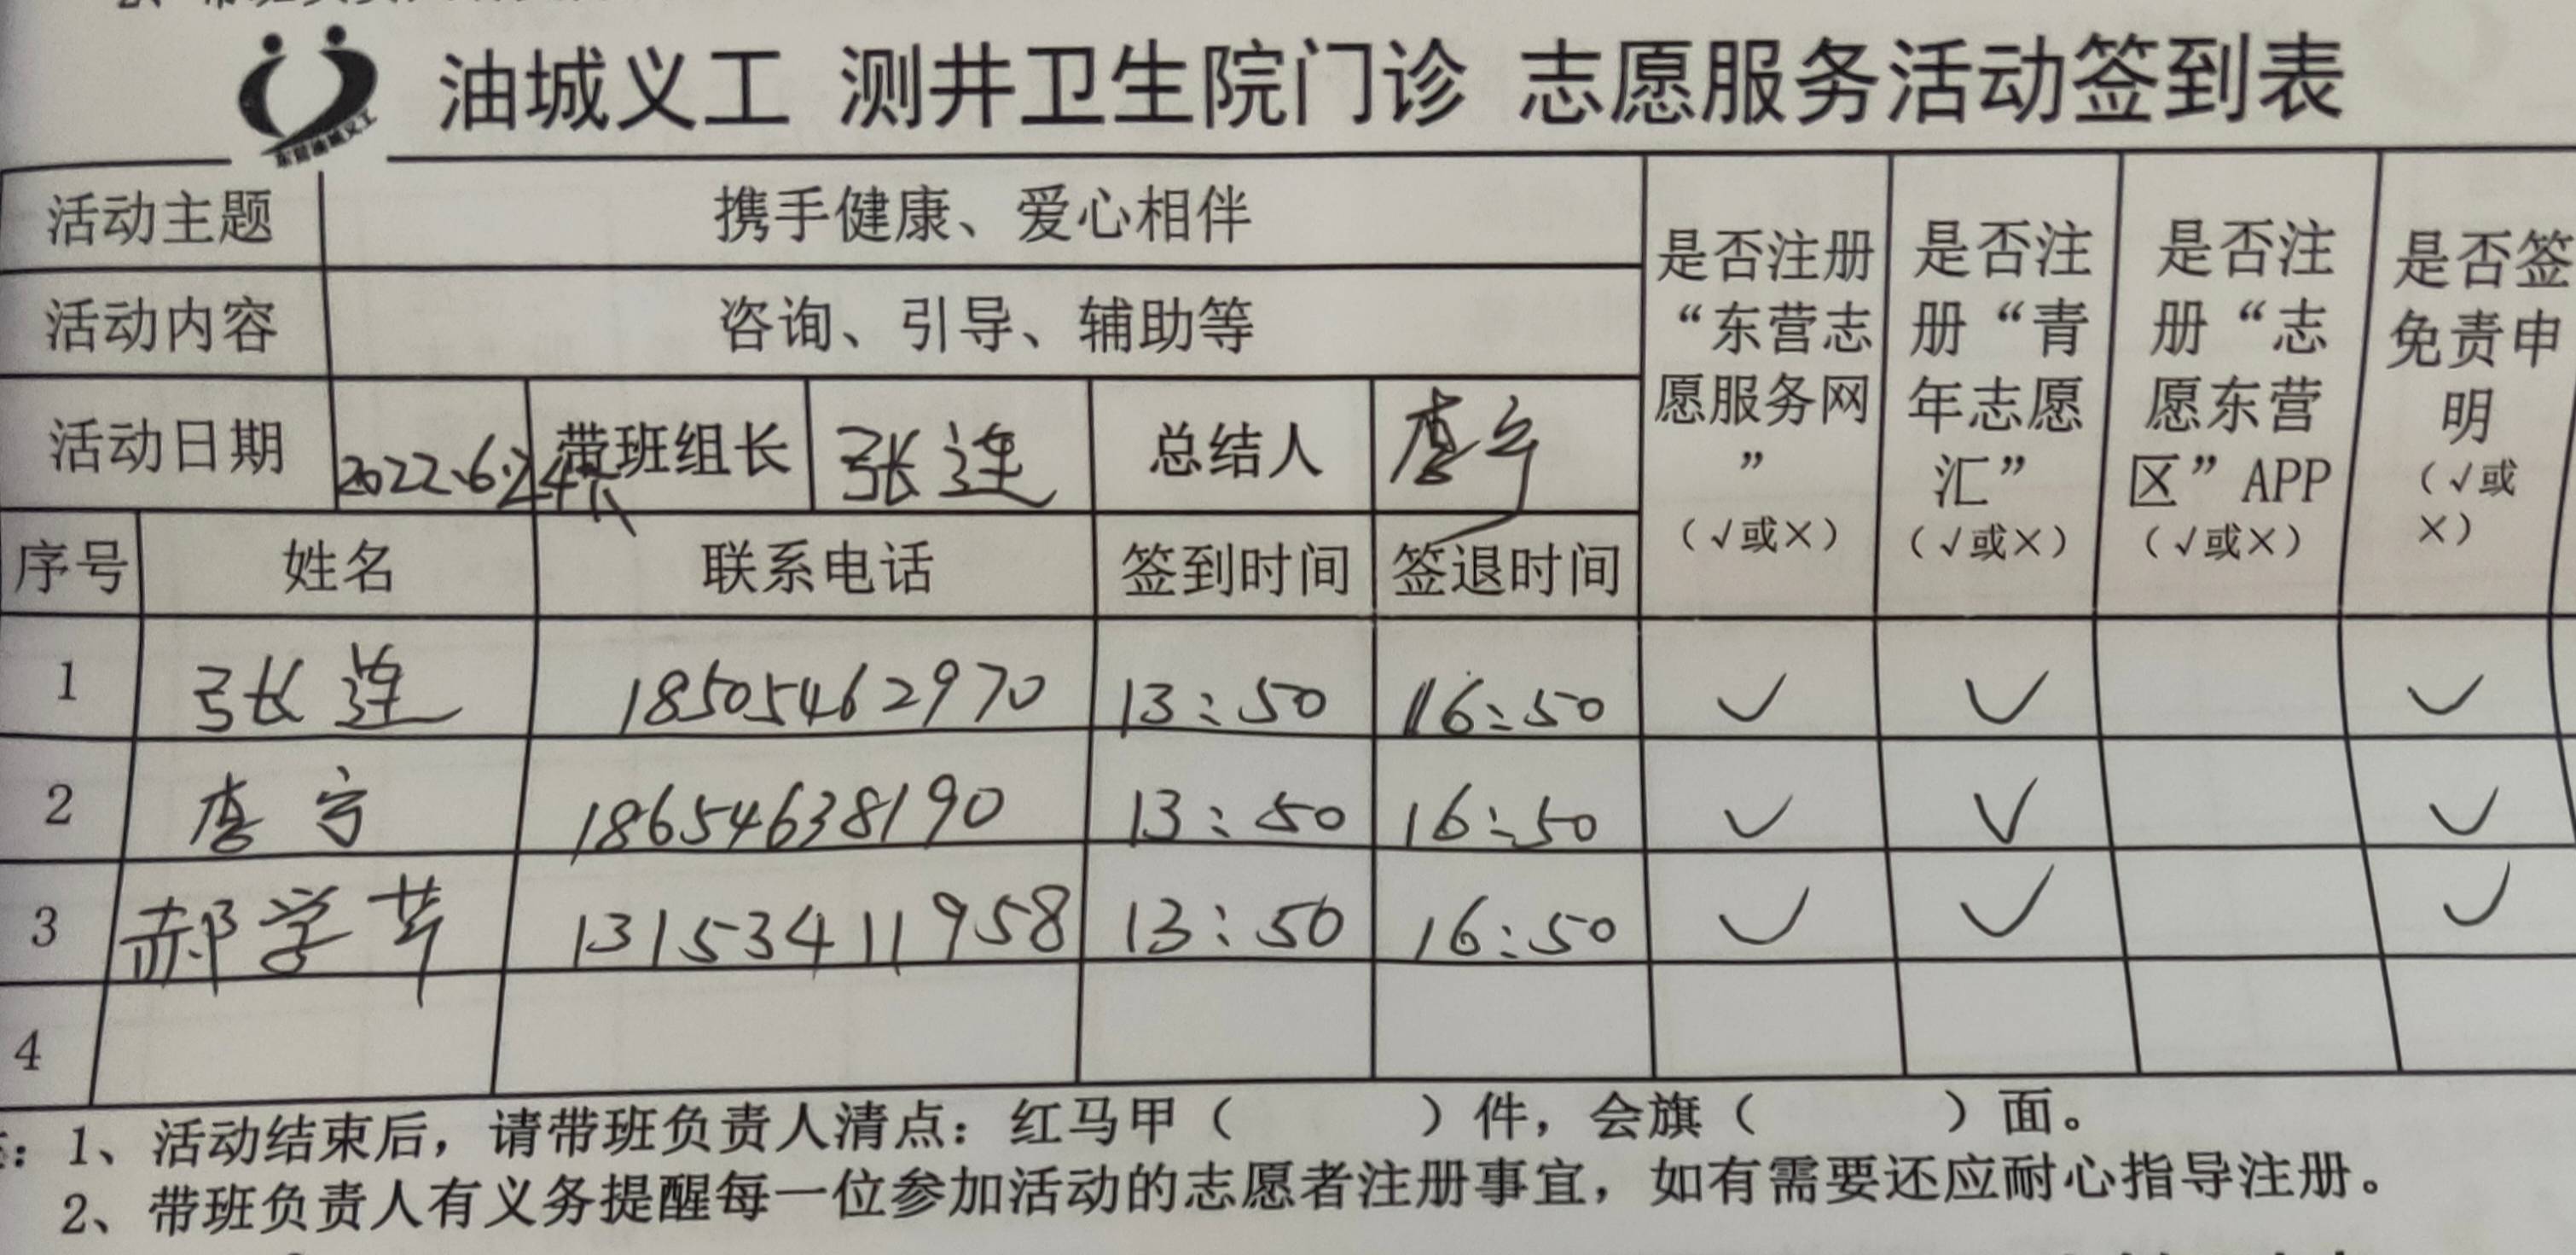 油城义工 测井卫生院门诊 志愿服务活动签到表
东营油城义工
活动主题 携手健康、爱心相伴
活动内容 咨询、引导、辅助等
活动日期 2022.6.24 带班组长 张连 总结人
是否注册“东营志愿服务网”（√或×）
是否注册“青年志愿汇”（√或×）
是否注册“志愿东营区”APP（√或×）
是否签免责申明（√或×）
序号 姓名 联系电话 签到时间 签退时间
1 张连 18505462970 13:50 16:50 √ √ √
2 18654638190 13:50 16:50 √ √ √
3 郝学芹 13153411958 13:50 16:50 √ √ √
4
：1、活动结束后，请带班负责人清点：红马甲（ ）件，会旗（ ）面。
2、带班负责人有义务提醒每一位参加活动的志愿者注册事宜，如有需要还应耐心指导注册。